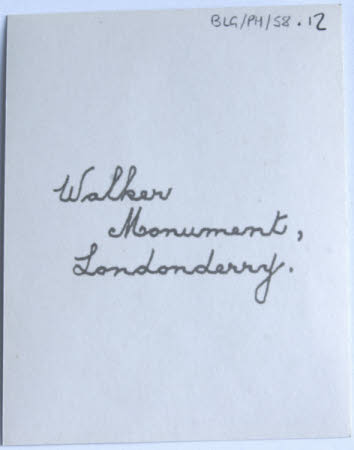 BLG/PH/58.12
Walker
Monument,
Londonderry.